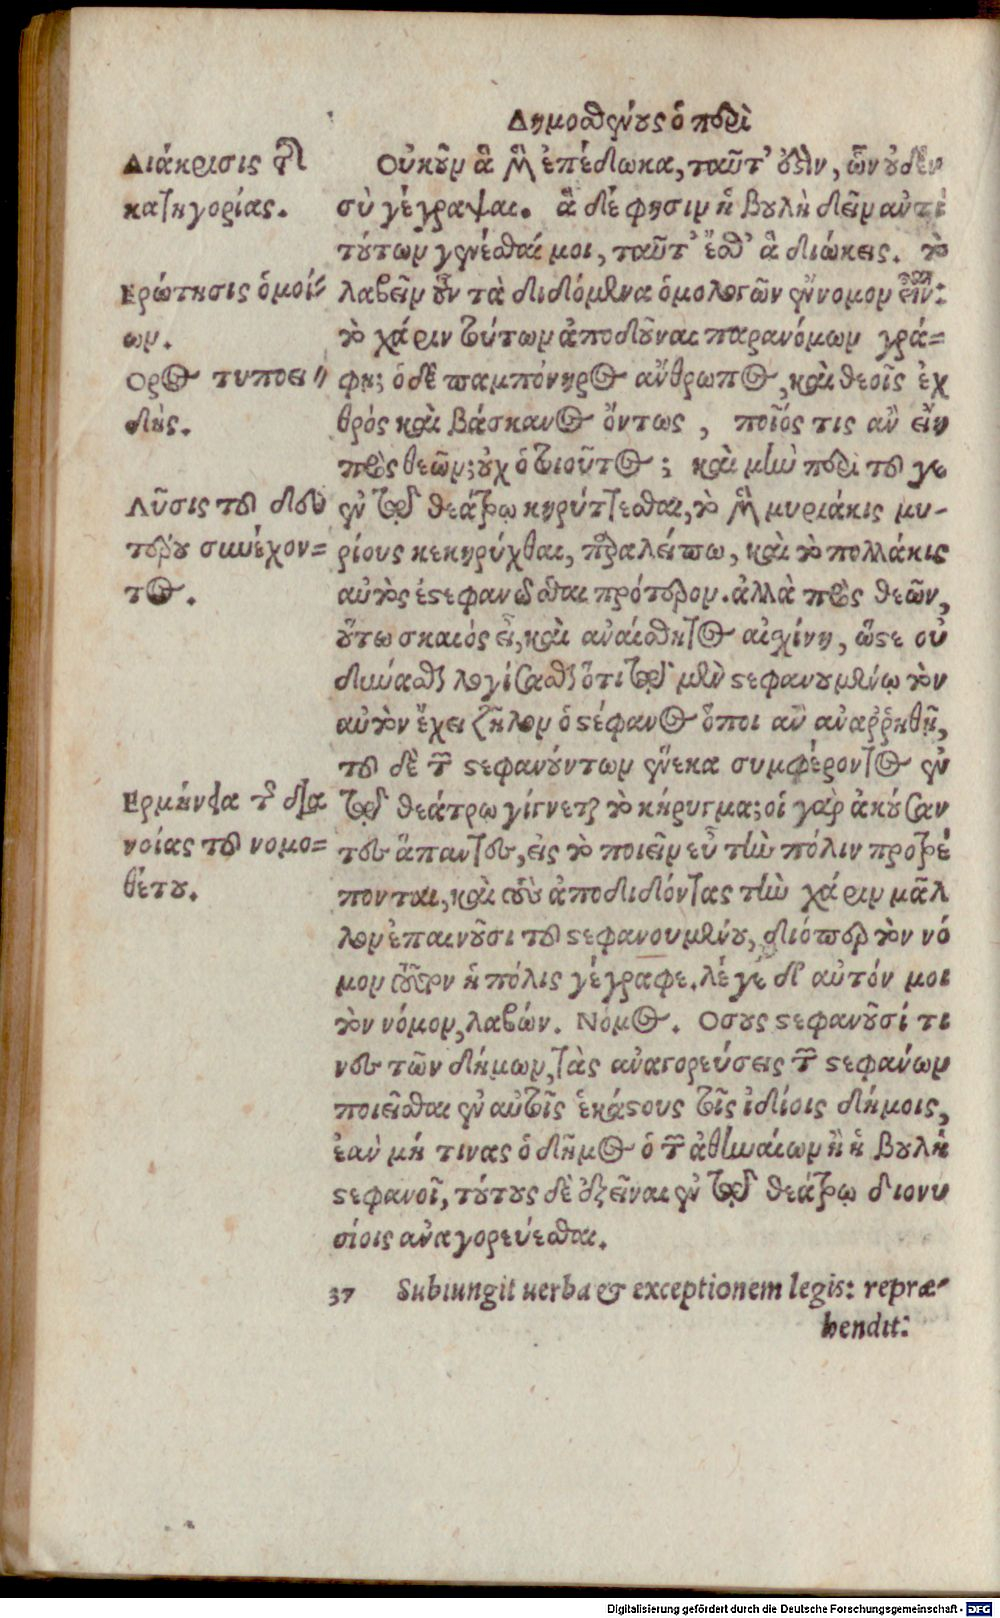 Δημοσθένους ὁ περὶ
Διάκρισις τῆς
κατηγορίας.
Ερώτησις ὁμοί-
ων.
Ορος τυποει-
δής.
Λῦσις τοῦ δευ
τέρου συνέχον-
τος.
Ερμήνεια τῆς δια
νοίας τοῦ νομο-
θέτου.
Οὐκοῦν ἃ μὲν ἐπέδωκα, ταῦτ’ ἐστὶν, ὧν οὐδὲν
σὺ γέγραψαι. ἃ δέ φησιν ἡ βουλὴ δεῖν ἀντὶ
τούτων γενέσθαι μοι, ταῦτ’ ἔσθ’ ἃ διώκεις. τὸ
λαβεῖν οὖν τὰ διδόμενα ὁμολογῶν ἔννομον εἶναι:
τὸ χάριν τούτων ἀποδοῦναι παρανόμων γρά-
φῃ; ὁ δὲ παμπόνηρος ἄνθρωπος, καὶ θεοῖς ἐχ
θρὸς καὶ βάσκανος ὄντως, ποῖός τις ἂν εἴη
πρὸς θεῶν; οὐχ ὁ τοιοῦτος; καὶ μὴν περὶ τοῦ γε
ἐν τῷ θεάτρῳ κηρύττεσθαι, τὸ μὲν μυριάκις μυ-
ρίους κεκηρύχθαι, παραλείπω, καὶ τὸ πολλάκις
αὐτὸς ἐστεφανῶσθαι πρότερον. ἀλλὰ πρὸς θεῶν,
οὕτω σκαιὸς εἶ, καὶ ἀναίσθητος αἰσχίνη, ὥστε οὐ
δύνασαι λογίσασθαι ὅτι τῷ μὲν στεφανουμένῳ τὸν
αὐτὸν ἔχει ζῆλον ὁ στέφανος ὅποι ἂν ἀναῤῥηθῇ,
τοῦ δὲ τῶν στεφανούντων ἕνεκα συμφέροντος ἐν
τῷ θεάτρῳ γίγνεται τὸ κήρυγμα; οἱ γὰρ ἀκούσαν
τες ἅπαντες, εἰς τὸ ποιεῖν εὖ τὴν πόλιν προτρέ
πονται, καὶ τοὺς ἀποδιδόντας τὴν χάριν μᾶλ
λον ἐπαινοῦσι τοῦ στεφανουμένου, διόπερ τὸν νό
μον τοῦτον ἡ πόλις γέγραφε. λέγε δ’ αὐτόν μοι
τὸν νόμον, λαβών. Νόμος. Οσους στεφανοῦσί τι
νες τῶν δήμων, τὰς ἀναγορεύσεις τῶν στεφάνων
ποιεῖσθαι ἐν αὐτοῖς ἑκάστους τοῖς ἰδίοις δήμοις,
ἐὰν μή τινας ὁ δῆμος ὁ τῶν ἀθηναίων ἢ ἡ βουλὴ
στεφανοῖ, τούτους δὲ ἐξεῖναι ἐν τῷ θεάτρῳ διονυ
σίοις ἀναγορεύεσθαι.
37 Subiungit uerba & exceptionem legis: repræ-
hendit:
Digitalisierung gefördert durch die Deutsche Forschungsgemeinschaft - DFG